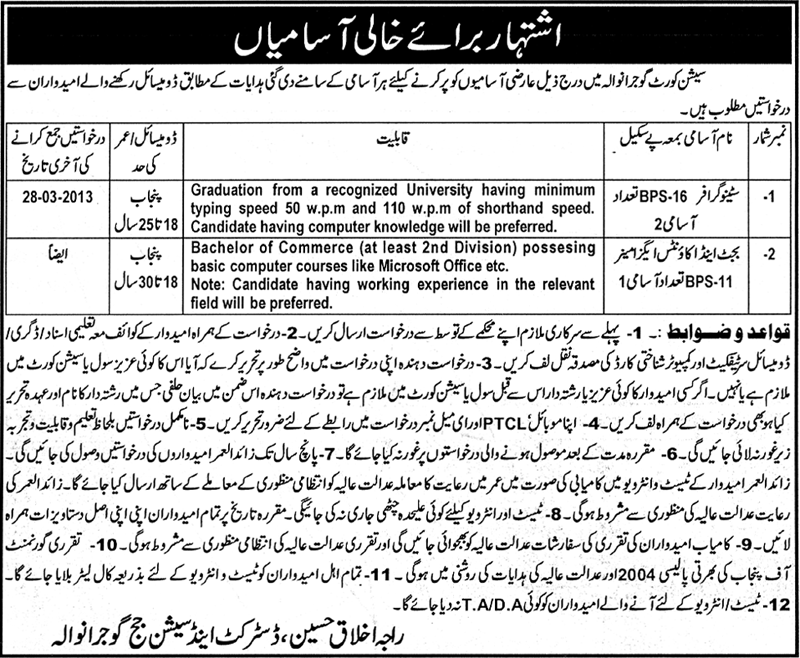 اشتہار برائے خالی آسامیاں
سیشن کورٹ گوجرانوالہ میں درج ذیل عارضی آسامیوں کو پر کرنے کیلئے ہر آسامی کے سامنے دی گئی ہدایات کے مطابق ڈومیسائل رکھنے والے امیدواران سے
درخواستیں مطلوب ہیں۔
نمبر شمار نام آسامی بمعہ پے سکیل قابلیت ڈومیسائل/عمر کی حد درخواستیں جمع کرانے کی آخری تاریخ
-1 سٹینوگرافر BPS-16 تعداد آسامی 2
Graduation from a recognized University having minimum
typing speed 50 w.p.m and 110 w.p.m of shorthand speed.
Candidate having computer knowledge will be preferred.
پنجاب
18 تا 25 سال
28-03-2013
-2 بجٹ اینڈ اکاؤنٹس ایگزامینر
BPS-11 تعداد آسامی 1
Bachelor of Commerce (at least 2nd Division) possesing
basic computer courses like Microsoft Office etc.
Note: Candidate having working experience in the relevant
field will be preferred.
پنجاب
18 تا 30 سال
ایضاً
قواعد و ضوابط :۔ 1- پہلے سے سرکاری ملازم اپنے محکمے کے توسط سے درخواست ارسال کریں۔ 2- درخواست کے ہمراہ امیدوار کے کوائف معہ تعلیمی اسناد/ڈگری/
ڈومیسائل سرٹیفکیٹ اور کمپیوٹر شناختی کارڈ کی مصدقہ نقل لف کریں۔ 3- درخواست دہندہ اپنی درخواست میں واضح طور پر تحریر کرے کہ آیا اس کا کوئی عزیز سول یا سیشن کورٹ میں
ملازم ہے یا نہیں۔ اگر کسی امیدوار کا کوئی عزیز یا رشتہ دار اس سے قبل سول یا سیشن کورٹ میں ملازم ہے تو درخواست دہندہ اس ضمن میں بیان حلفی جس میں رشتہ دار کا نام اور عہدہ تحریر
کیا ہو بھی درخواست کے ہمراہ لف کریں۔ 4- اپنا موبائل/PTCL اور ای میل نمبر درخواست میں رابطے کے لئے ضرور تحریر کریں۔ 5- نامکمل درخواستیں بلحاظ تعلیم و قابلیت و تجربہ
زیر غور نہ لائی جائیں گی۔ 6- مقررہ مدت کے بعد موصول ہونے والی درخواستوں پر غور نہ کیا جائے گا۔ 7- پانچ سال تک زائد العمر امیدواروں کی درخواستیں وصول کی جائیں گی۔
زائد العمر امیدوار کے ٹیسٹ و انٹرویو میں کامیابی کی صورت میں عمر میں رعایت کا معاملہ عدالت عالیہ کو انتظامی منظوری کے معاملے کے ساتھ ارسال کیا جائے گا۔ زائد العمر کی
رعایت عدالت عالیہ کی منظوری سے مشروط ہوگی۔ 8- ٹیسٹ اور انٹرویو کیلئے کوئی علیحدہ چٹھی جاری نہ کی جائیگی۔ مقررہ تاریخ پر تمام امیدواران اپنی اپنی اصل دستاویزات ہمراہ
لائیں۔ 9- کامیاب امیدواران کی تقرری کی سفارشات عدالت عالیہ کو بھجوائی جائیں گی اور تقرری عدالت عالیہ کی انتظامی منظوری سے مشروط ہوگی۔ 10- تقرری گورنمنٹ
آف پنجاب کی بھرتی پالیسی 2004 اور عدالت عالیہ کی ہدایات کی روشنی میں ہوگی۔ 11- تمام اہل امیدواران کو ٹیسٹ و انٹرویو کے لئے بذریعہ کال لیٹر بلایا جائے گا۔
12- ٹیسٹ/انٹرویو کے لئے آنے والے امیدواران کو کوئی T.A/D.A نہ دیا جائے گا۔
راجہ اخلاق حسین، ڈسٹرکٹ اینڈ سیشن جج گوجرانوالہ